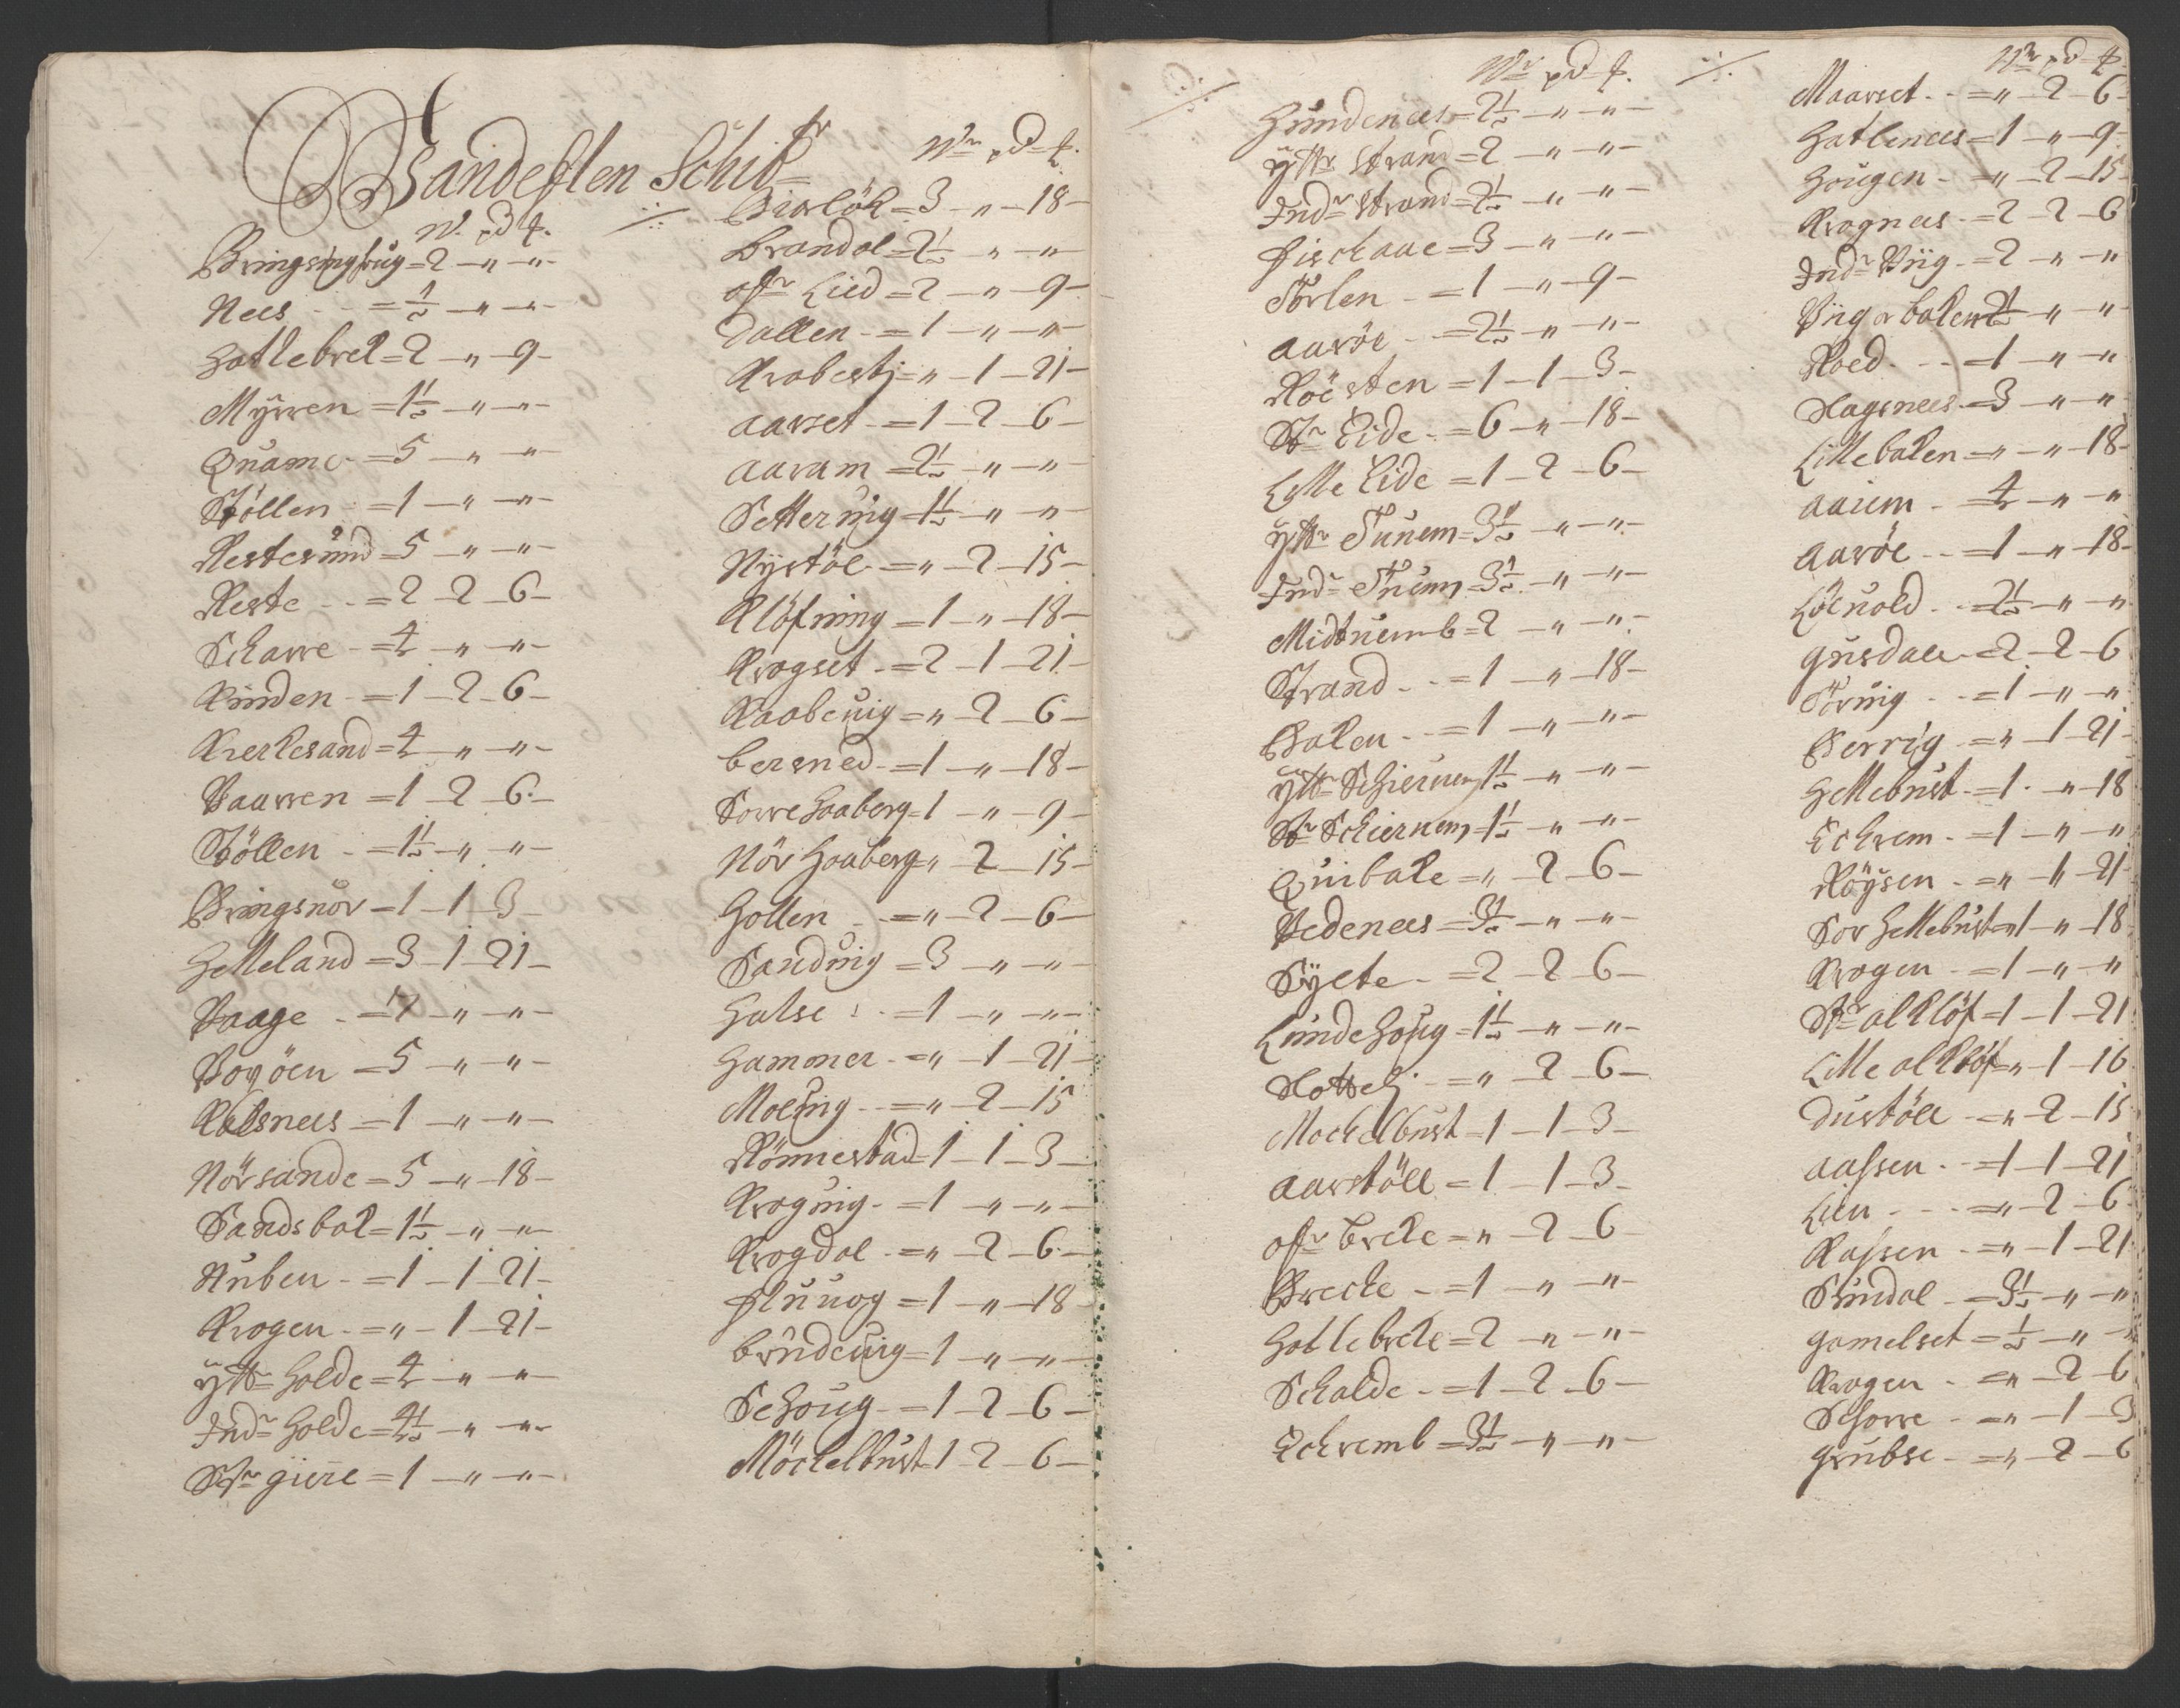 Wandeflen Schib^r
W. pd ₰.
Bringsinghug = 2 — " — " —
Nees - - = ½ — " — " —
Hatlebrek = 2 — " — 9 —
Myrren = 1½ — " — " —
Quame - = 5 — " — " —
Støllen = 1 — " — " —
Restesund = 5 — " — " —
Reste - - = 2 — 2 — 6 —
Scharre - = 4 — " — " —
Rinden - = 1 — 2 — 6 —
Kierkesand = 4 — " — " —
Vaarren = 1 — 2 — 6 —
Støllen - = 1½ — " — " —
Bringsnör = 1 — 1 — 3 —
Helleland = 3 — 1 — 21 —
Vaage - = — " — " —
Vogöen = 5 — " — " —
Kalsnees = 1 — " — " —
Nörsande = 5 — " — 18 —
Sandsbak = 1½ — " — " —
Nuben - = 1 — 1 — 21 —
Krogen - = " — 1 — 21 —
ytt^r Holde = 4 — " — " —
Ind^r Holde = 4½ — " — " —
St^r giere = 1 — " — " —
./. W^r pd ₰.
Biorlök = 3 — " — 18 —
Brandal = 2½ — " — " —
of^r Lied = 2 — " — 9 —
Dallen - = 1 — " — " —
Krabestj = " — 1 — 21 —
Aarset - = 1 — 2 — 6 —
Aaram = 2½ — " — " —
Setteruig = 1½ — " — " —
Nystöl = " — 2 — 15 —
Klöfning = 1 — " — 18 —
Krogset - = 2 — 1 — 21
Raabeuig = " — 2 — 6 —
Bersned - = 1 — " — 18 —
Sorre Haaberg = 1 — " — 9 —
Nör Haaberg = " — 2 — 15 —
Hollen - = " — 2 — 6 —
Sanduig = 3 — " — " —
Halse - = 1 — " — " —
Hammer - = " — 1 — 21 —
Moeuig - - = " — 2 — 15
Rönnestad = 1 — 1 — 3 —
Kroguig - = 1 — " — " —
Krogdal - = " — 2 — 6 —
Fluuog = 1 — " — 18 —
Brudeuig = 1 — " — " —
Sehoug - = 1 — 2 — 6 —
Möckelbust 1 — 2 — 6 —
./. W^r pd ₰.
Hundenees = 2½ — " — " —
ytt^r Strand = 2 — " — " —
Ind^r Strand = 2½ — " — " —
Fischaae = 3 — " — " —
Törlen - = 1 — " — 9 —
Aaröe - = 2½ — " — " —
Röesten = 1 — 1 — 3 —
St^r Eide - = 6 — " — 18 —
Lille Eide = 1 — 2 — 6 —
ytt^r Tunem = 3½ — " — " —
Ind^r Tnum = 3½ — " — " —
Midtnemb = 2 — " — " —
Strand - - = 1 — " — 18 —
Baken - = 1 — " — " —
ytt^r Schieruen 1½ — " — " —
St^r Schieruem = 1½ — " — " —
Quibake = " — 2 — 6 —
Vedenees = 3½ — " — " —
Sylte - = 2 — 2 — 6 —
Lunde Houg = 1½ — " — " —
Slottelj - = " — 2 — 6 —
Mockelbust = 1 — 1 — 3 —
Aarstöll = 1 — 1 — 3 —
of^r Breke = " — 2 — 6
Brecke - = 1 — " — " —
Hatlebreke = 2 — " — " —
Schalde - = 1 — 2 — 6 —
Echremb = 3½ — " — " —
./. W^r pd ₰
Maarset - - = " — 2 — 6 —
Hatlenees = 1 — " — 9 —
Hougen - = " — 2 — 15 —
Krognees - = 2 — 2 — 6
Ind^r Viig - = 2 — " — "
Viigsbaken 2½ — " — "
Roed - - = 1 — " — "
Slagsnees = 3 — " — "
Lillebaken = " — " — 18 —
Aaiem - = 4 — " — "
Aaröe - - = 1 — " — 18 —
Löeuold - = 2½ — " — "
Gusdale = 2 — 2 — 6
Töruig - - = 1 — " — "
Berrig - = " — 1 — 21
Hellebust - = 1 - " — 18
Echrem - = 1 — " — "
Röysen - = " — 1 — 21
Sor Hellebust = 1 — " — 18
Krogen - = 1 — " — "
St^r alklöf = 1 — 1 — 21
Lille alklöf = " — 1 — 16
Dustöll - = " — 2 — 15
Aassen - = 1 — 1 — 21
Lien - - - = " — 2 — 6
Rassen - = " — 1 — 21
Sundal - = 3½ — " — "
Gamelset = ½ — " — "
Krogen - = " — 2 — 6
Schorre - = " — 1 — 3
Grubse - = " — 2 — 6